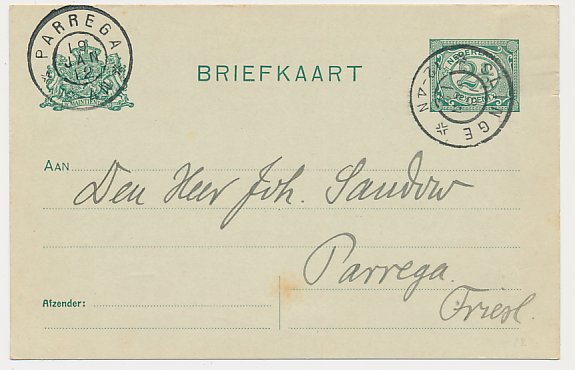 PARREGA
19
JAN
12
BRIEFKAART
NEDERLAND
2½
CENT
2-4 N
AAN Den Heer Joh. Sandow
Parrega.
Afzender:
Friesl.